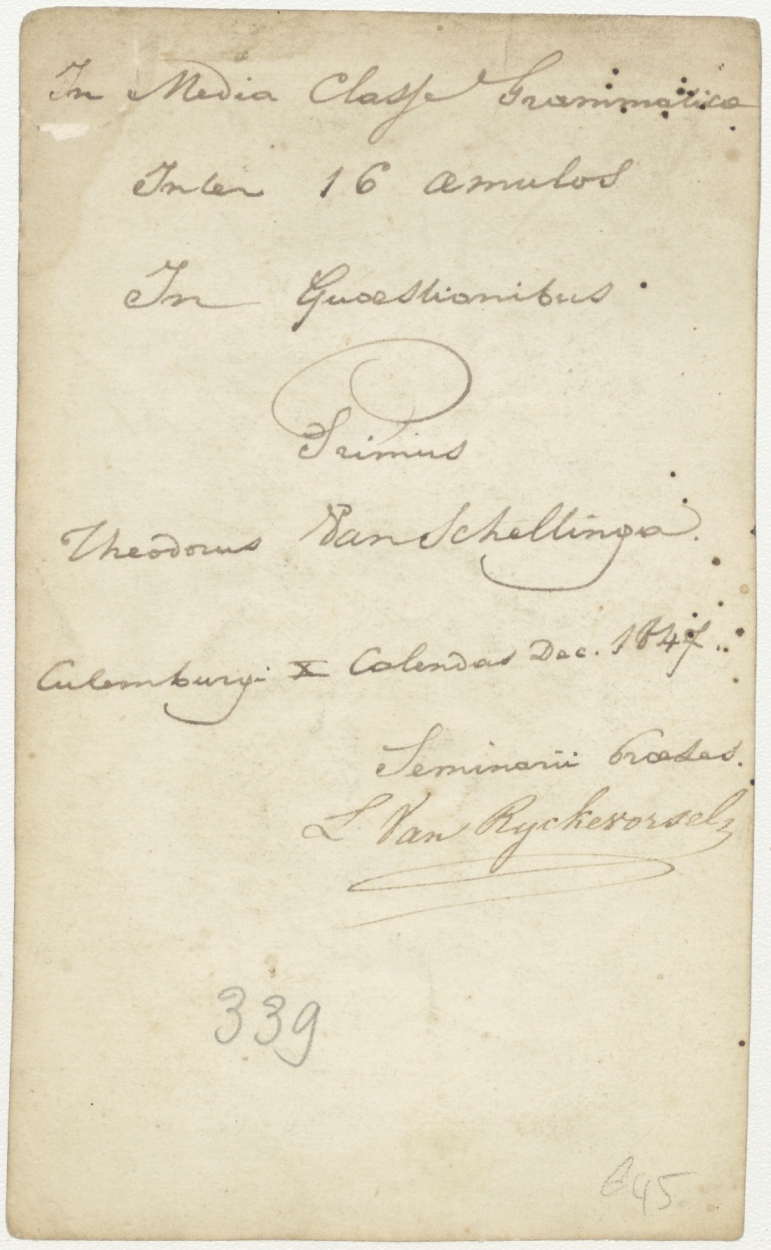 In Media Classe Grammatica
Inter 16 æmulos
In Quæstionibus
Primus
Theodorus Van Schellinga.
Culemburgi X Calendas Dec. 1847.
Seminarii Præses.
L Van Ryckevorsel
339